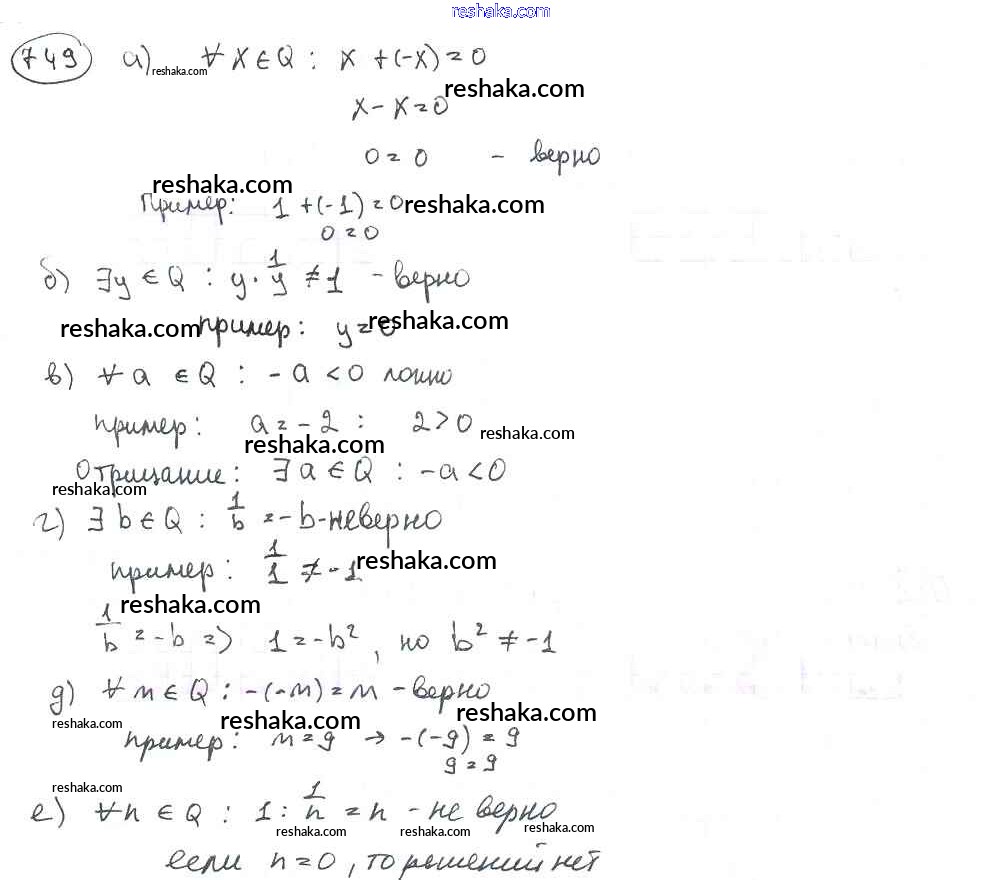 reshaka.com
749 а) reshaka.com ∀ x ∈ Q : x + (-x) = 0
reshaka.com
x - x = 0
0 = 0 - верно
reshaka.com
Пример: 1 + (-1) = 0 reshaka.com
0 = 0
б) ∃y ∈ Q : y · 1/y ≠ 1 - верно
reshaka.com пример: y = 0 reshaka.com
в) ∀ a ∈ Q : - a < 0 ложно
пример: a = - 2 : 2 > 0 reshaka.com
reshaka.com
Отрицание: ∃ a ∈ Q : -a < 0
reshaka.com
г) ∃ b ∈ Q : 1/b = -b - неверно
пример: 1/1 ≠ -1 reshaka.com
reshaka.com
1/b = -b => 1 = -b², но b² ≠ -1
д) ∀ m ∈ Q : -(-m) = m - верно
reshaka.com reshaka.com reshaka.com
пример: m = 9 → -(-9) = 9
9 = 9
reshaka.com
е) ∀n ∈ Q : 1 : 1/n = n - не верно
reshaka.com reshaka.com reshaka.com
если n = 0, то решений нет